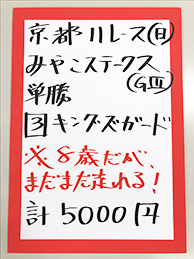 京都11レース(日)
みやこステークス
(GⅢ)
単勝
3キングズガード
※8歳だが、
まだまだ走れる!
計5000円